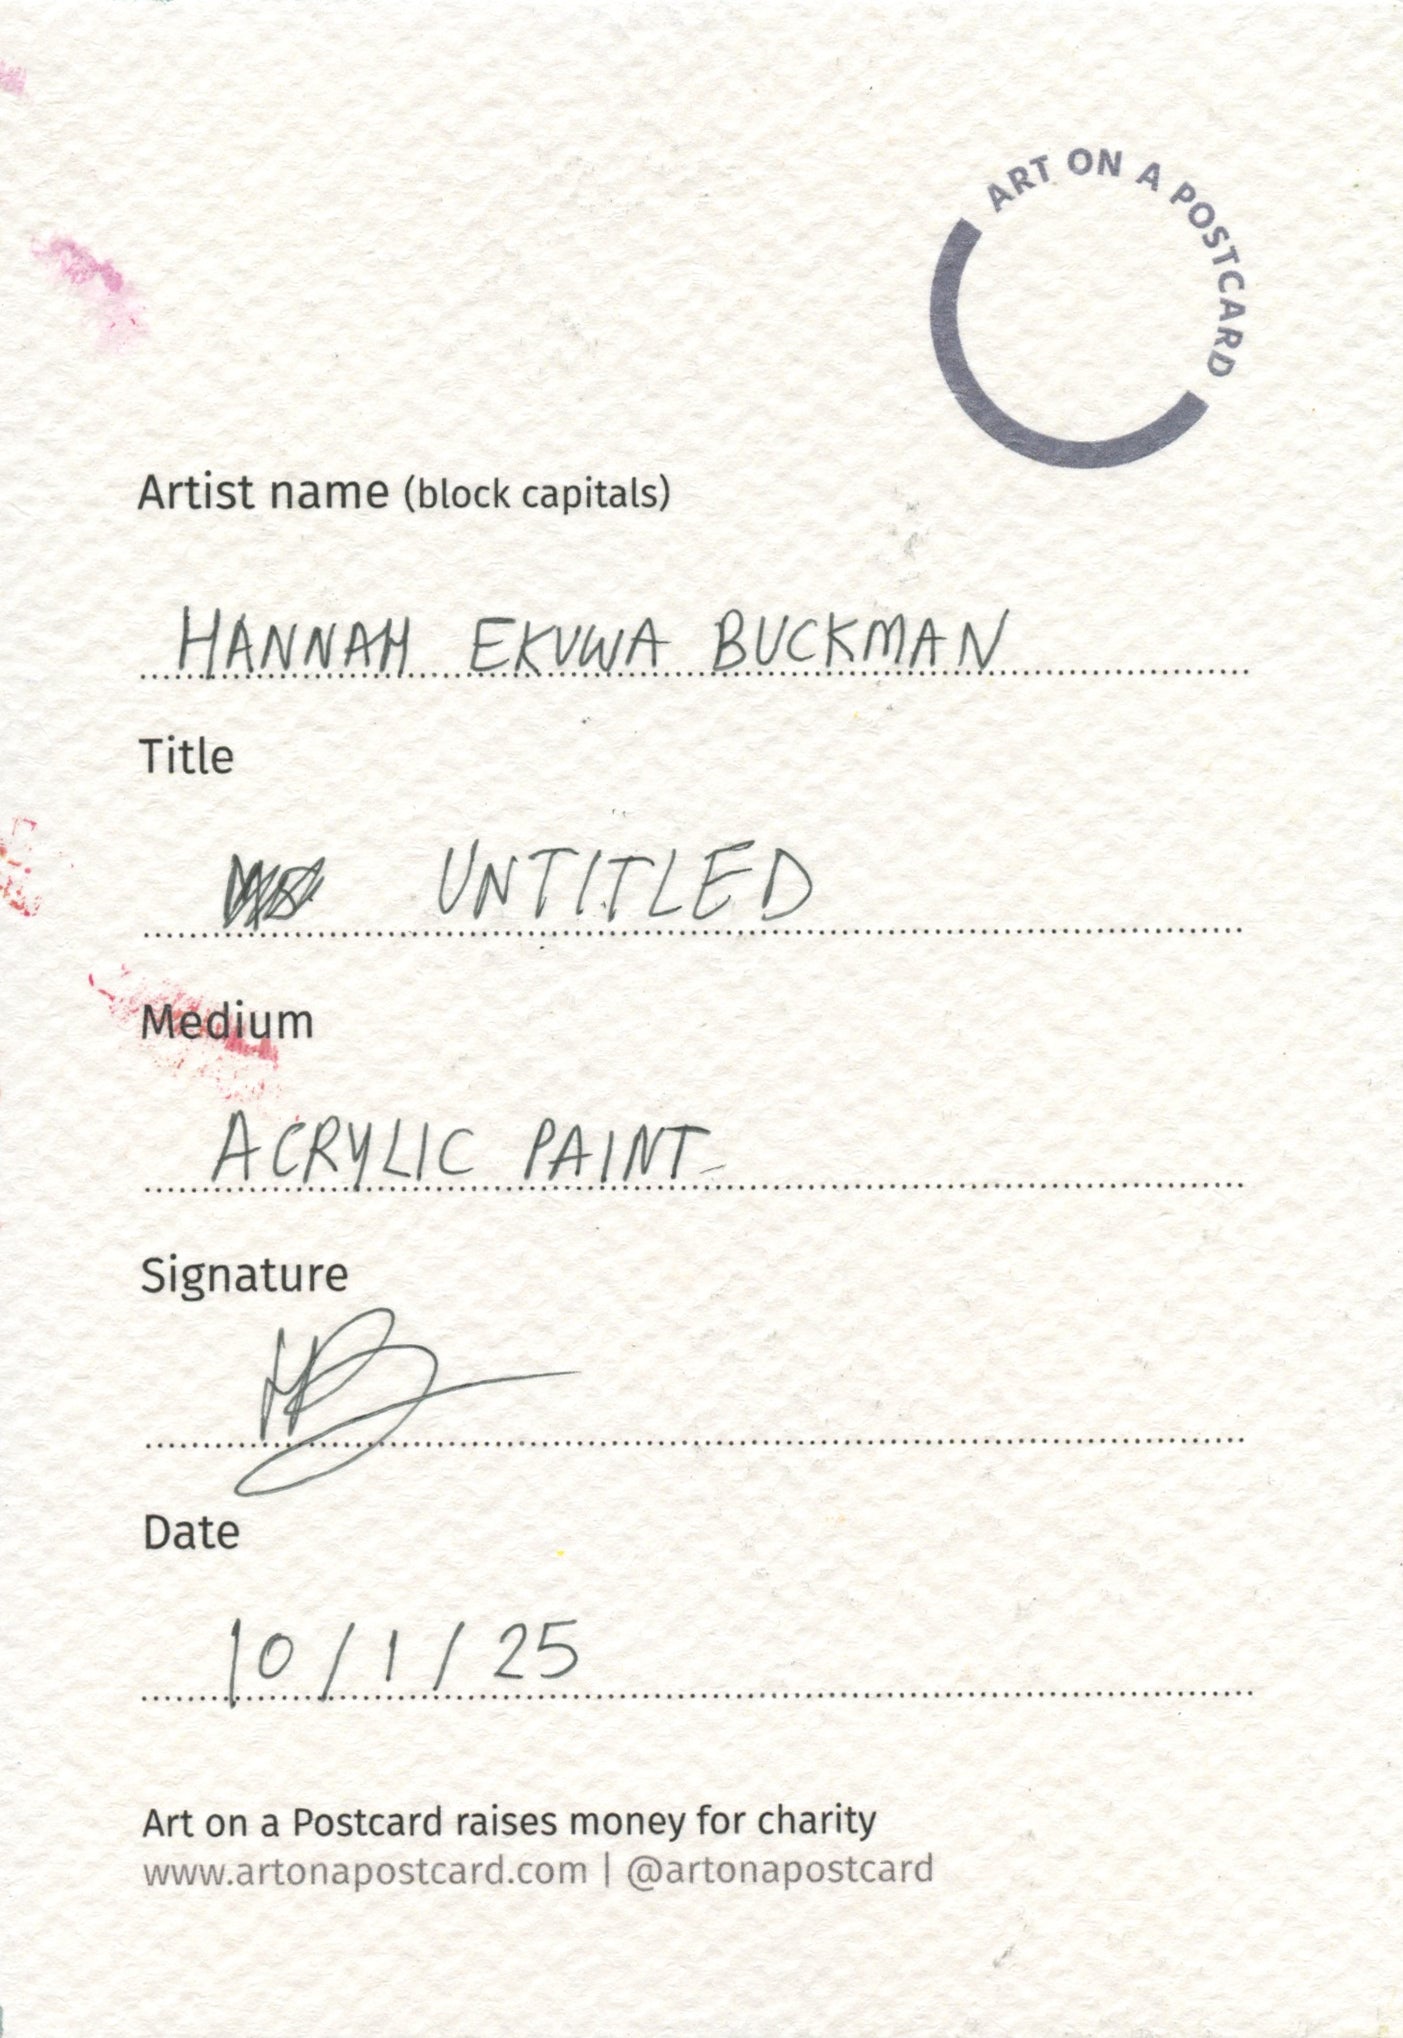 ART ON A POSTCARD
Artist name (block capitals)
HANNAH EKUWA BUCKMAN
Title
UNTITLED
Medium
ACRYLIC PAINT
Signature
HB
Date
10/1/25
Art on a Postcard raises money for charity
www.artonapostcard.com | @artonapostcard